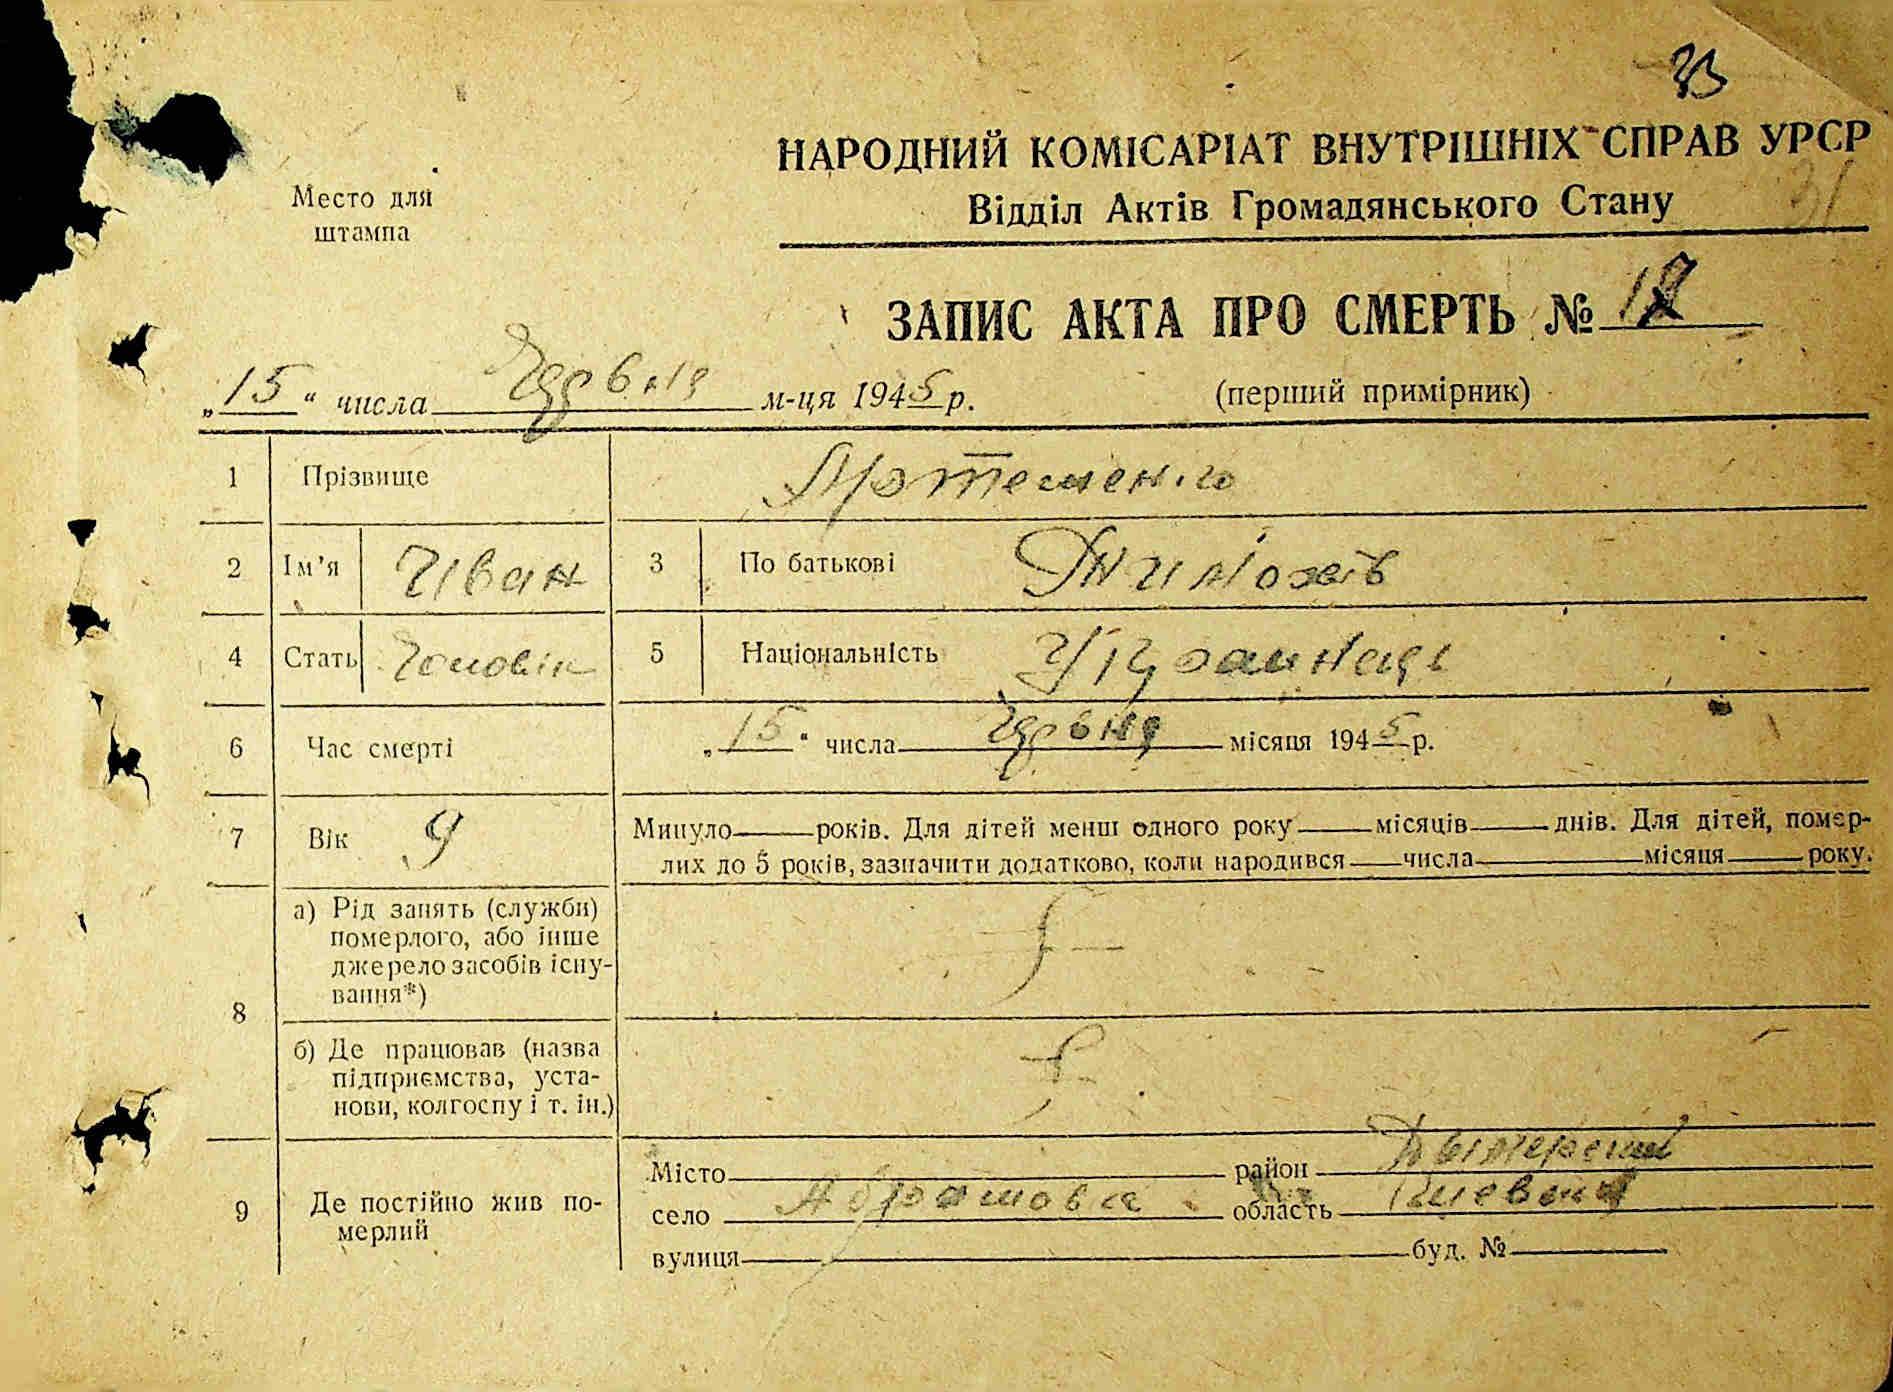 33
НАРОДНИЙ КОМІСАРІАТ ВНУТРІШНІХ СПРАВ УРСР
31
Место для
штампа
Відділ Актів Громадянського Стану
ЗАПИС АКТА ПРО СМЕРТЬ №
„15“ числа м-ця 1945 р. (перший примірник)
1 Прізвище Артеменко
2 Ім’я Иван 3 По батькові
4 Стать Чоловік 5 Національність
6 Час смерті „15“ числа місяця 1945 р.
7 Вік 9 Минуло років. Для дітей менш одного року місяців днів. Для дітей, помер-
лих до 5 років, зазначити додатково, коли народився числа місяця року.
8 а) Рід занять (служби)
померлого, або інше
джерело засобів існу-
вання*)
б) Де працював (назва
підприємства, уста-
нови, колгоспу і т. ін.)
9 Де постійно жив по-
мерлий
Місто район
село область
вулиця буд. №